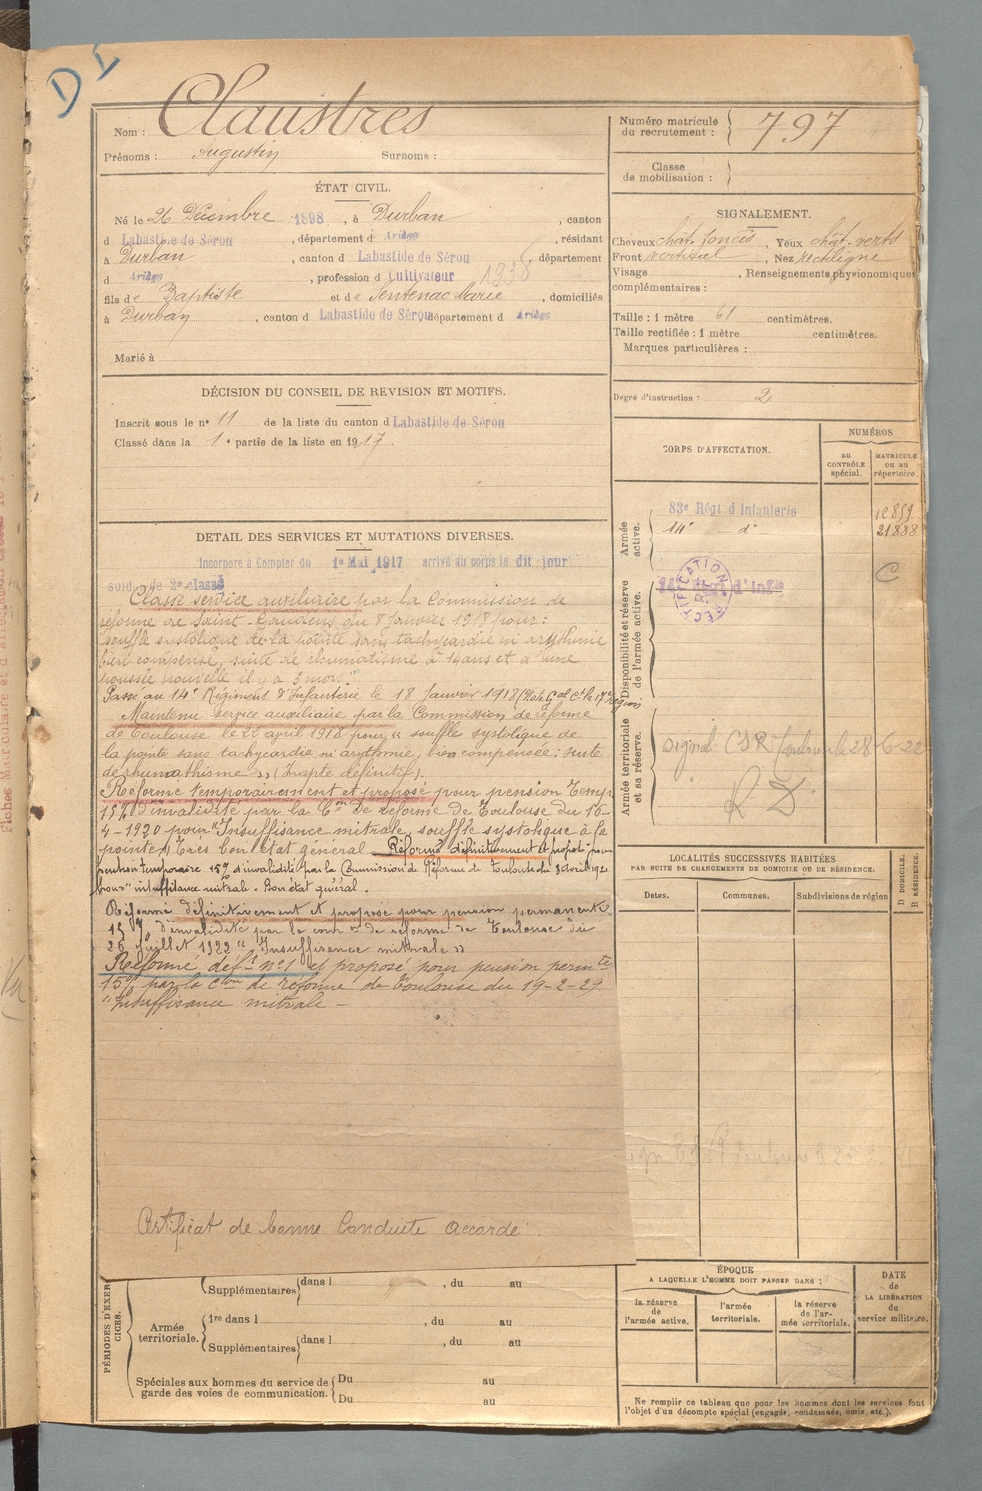 D L
Nom : Claustres
Prénoms : Augustin Surnoms :
ÉTAT CIVIL.
Né le 26 Décembre 1898 , à Durban , canton
d Labastide de Sérou , département d Ariège , résidant
à Durban , canton d Labastide de Sérou , département
d Ariège , profession d Cultivateur 1938
fils de Baptiste et de Sentenac Marie , domiciliés
à Durban , canton d Labastide de Sérou département d Ariège
Marié à
DÉCISION DU CONSEIL DE REVISION ET MOTIFS.
Inscrit sous le n° 11 de la liste du canton d Labastide de Sérou
Classé dans la 1e partie de la liste en 1917.
DETAIL DES SERVICES ET MUTATIONS DIVERSES.
Incorporé à Compter du 1er Mai 1917 arrivé au corps le dit jour
sold. de 2e classe
Classé service auxiliaire par la Commission de
réforme de Saint-Gaudens du 8 Janvier 1918 pour :
"souffle systolique de la pointe sans tachycardie ni arythmie
bien compensé, suite de rhumatisme à 14 ans et d'une
poussée nouvelle il y a 5 mois"
Passé au 14e Régiment d'Infanterie le 18 Janvier 1918 (Note Gal Ct la 17e région
Maintenu service auxiliaire par la Commission de réforme
de Toulouse le 22 avril 1918 pour "souffle systolique de
la pointe sans tachycardie ni arythmie, bien compensée : suite
de rhumathisme" (Inapte définitif).
Réformé temporairement et proposé pour pension Temp
15% d'invalidité par la Con de réforme de Toulouse du 16-
4-1920 pour "Insuffisance mitrale, souffle systolique à la
pointe" Très bon état général. Réformé définitivement et proposé pour
pension temporaire 15% d'invalidité par la Commission de Réforme de Toulouse du 8 avril 1921
pour "insuffisance mitrale. Bon état général.
Réformé définitivement et proposé pour pension permanente
15% d'invalidité par la Com on de réforme de Toulouse du
26 Juillet 1922 "Insuffisance mitrale"
Réformé déft n°1 et proposé pour pension permte
15% par la Cion de réforme de Toulouse du 19-2-29
"Insuffisance mitrale –
Certificat de bonne Conduite accordé.
PÉRIODES D'EXERCICES.
Supplémentaires dans l , du au
Armée territoriale. 1re dans l , du au
Supplémentaires dans l , du au
Spéciales aux hommes du service de garde des voies de communication. Du au
Du au
Numéro matricule du recrutement : 797
Classe de mobilisation :
SIGNALEMENT.
Cheveux chât. foncés , Yeux chât. verts
Front vertical , Nez rectiligne
Visage , Renseignements physionomiques
complémentaires :
Taille : 1 mètre 61 centimètres.
Taille rectifiée : 1 mètre centimètres.
Marques particulières :
Degré d'instruction : 2
CORPS D'AFFECTATION.
NUMÉROS
au CONTRÔLE spécial.
MATRICULE ou au répertoire.
Armée active.
83e Régt d'Infanterie 12859
14e d° 21888
C
Disponibilité et réserve de l'armée active.
RECTIFICATION
Armée territoriale et sa réserve.
Signal. CSR Toulouse le 28-6-22
R D
LOCALITÉS SUCCESSIVES HABITÉES
PAR SUITE DE CHANGEMENTS DE DOMICILE OU DE RÉSIDENCE.
Dates. Communes. Subdivisions de région
D DOMICILE.
R RÉSIDENCE.
ÉPOQUE
A LAQUELLE L'HOMME DOIT PASSER DANS :
la réserve de l'armée active. l'armée territoriale. la réserve de l'armée territoriale.
DATE de LA LIBÉRATION du service militaire.
Ne remplir ce tableau que pour les hommes dont les services font
l'objet d'un décompte spécial (engagés, condamnés, omis, etc.).